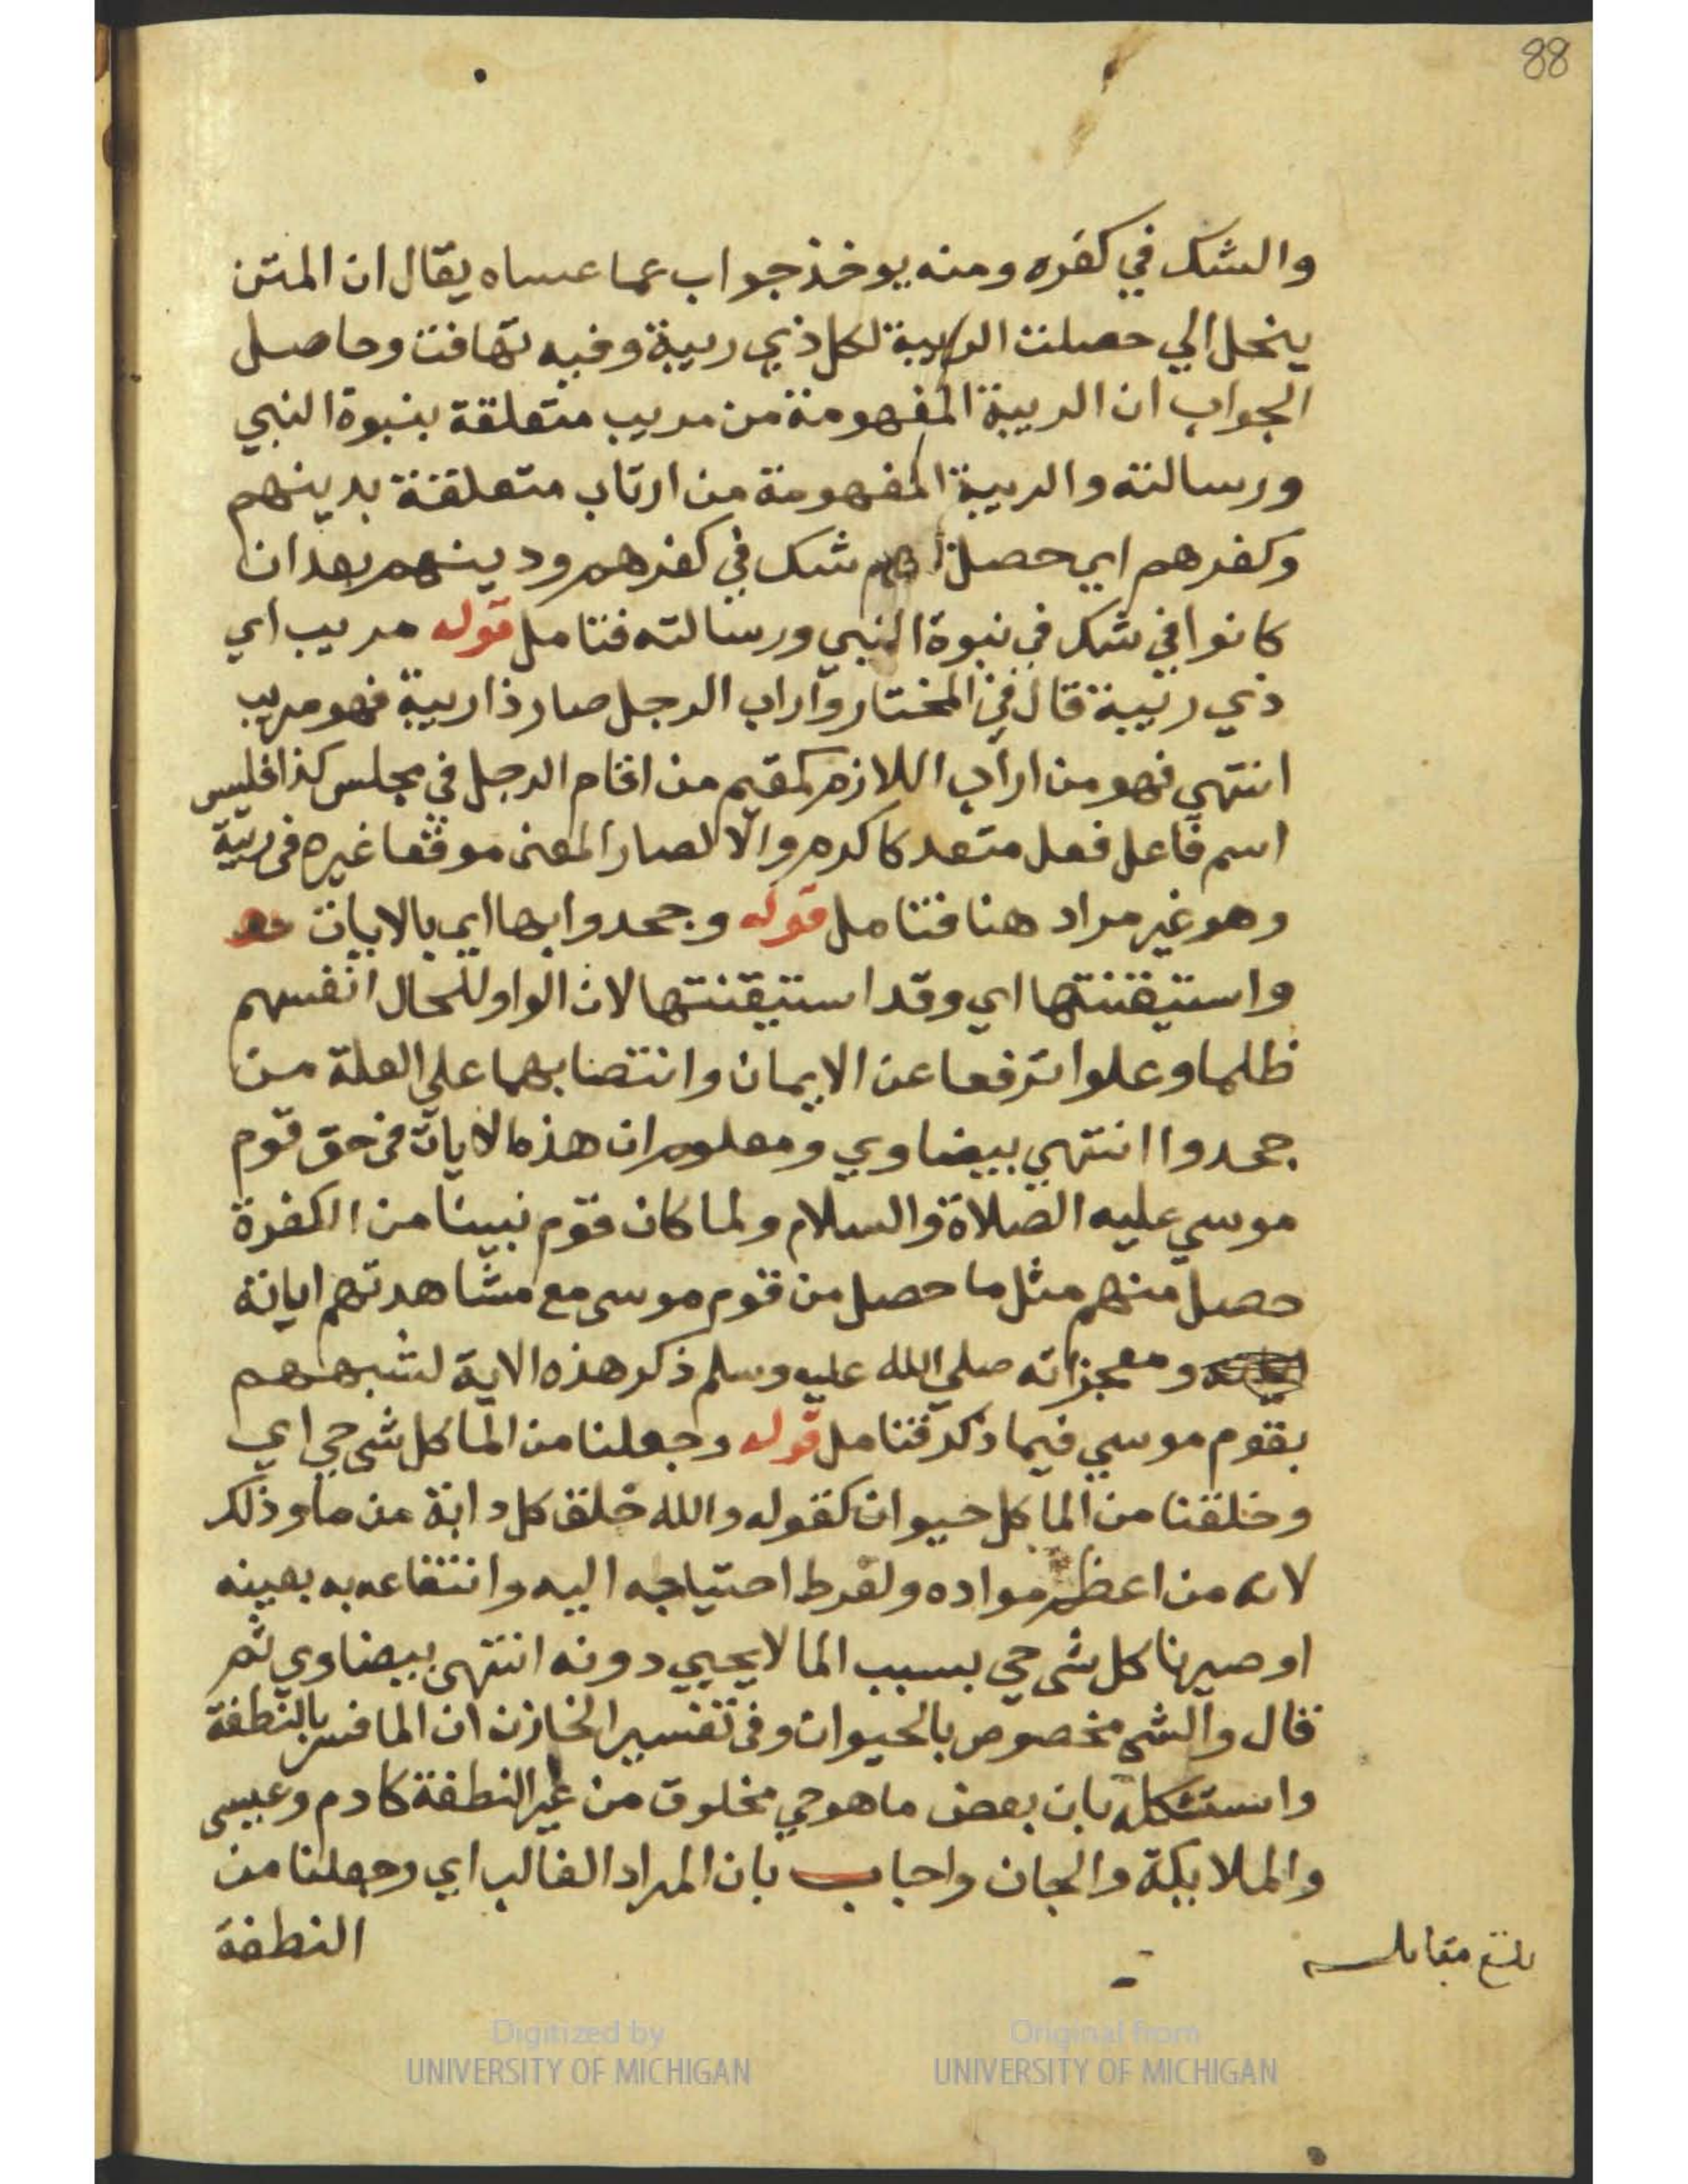 88
والشك في كفره ومنه يوخذ جواب عما عساه يقال ان المتن
ينحل الي حصلت الريبة لكل ذي ريبة وفيه تهافت وحاصل
الجواب ان الريبة المفهومة من مريب متعلقة بنبوة النبي
ورسالته والريبة المفهومة من ارتاب متعلقة بدينهم
وكفرهم اي حصل لهم شك في كفرهم ودينهم بعد ان
كانوا في شك في نبوة النبي ورسالته فتامل قوله مريب اي
ذي ريبة قال في المختار واراب الرجل صار ذا ريبة فهو مريب
انتهي فهو من اراب اللازم كمقيم من اقام الرجل في مجلس كذا فليس
اسم فاعل فعل متعد كاكرم والا لصار المعنى موقعا غيره في ريبة
وهو غير مراد هنا فتامل قوله وجحدوا بها اي بالايات
واستيقنتها اي وقد استيقنتها لان الواو للحال انفسهم
ظلما وعلوا ترفعا عن الايمان وانتصابهما على العلة من
جحدوا انتهي بيضاوي ومعلوم ان هذه الايات في حق قوم
موسي عليه الصلاة والسلام ولما كان قوم نبينا من الكفرة
حصل منهم مثل ما حصل من قوم موسى مع مشاهدتهم اياته
ومعجزاته صلي الله عليه وسلم ذكر هذه الاية لشبههم
بقوم موسي فيما ذكر فتامل قوله وجعلنا من الما كل شي حي اي
وخلقنا من الما كل حيوان كقوله والله خلق كل دابة من ما وذلك
لانه من اعظم مواده ولفرط احتياجه اليه وانتفاعه به بعينه
او صيرنا كل شي حي بسبب الما لا يحيي دونه انتهى بيضاوي ثم
قال والشي مخصوص بالحيوان وفي تفسير الخازن ان الما فسر بالنطفة
واستشكله بان بعض ما هو حي مخلوق من غير النطفة كادم وعيسى
والملايكة والجان واجاب بان المراد الغالب اي وجعلنا من
النطفة
بلغ مقابله
Digitized by
UNIVERSITY OF MICHIGAN
Original from
UNIVERSITY OF MICHIGAN